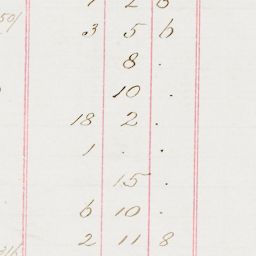 3 5 6
8 .
10 .
18 2 .
1 . .
15 .
6 10 .
2 11 8